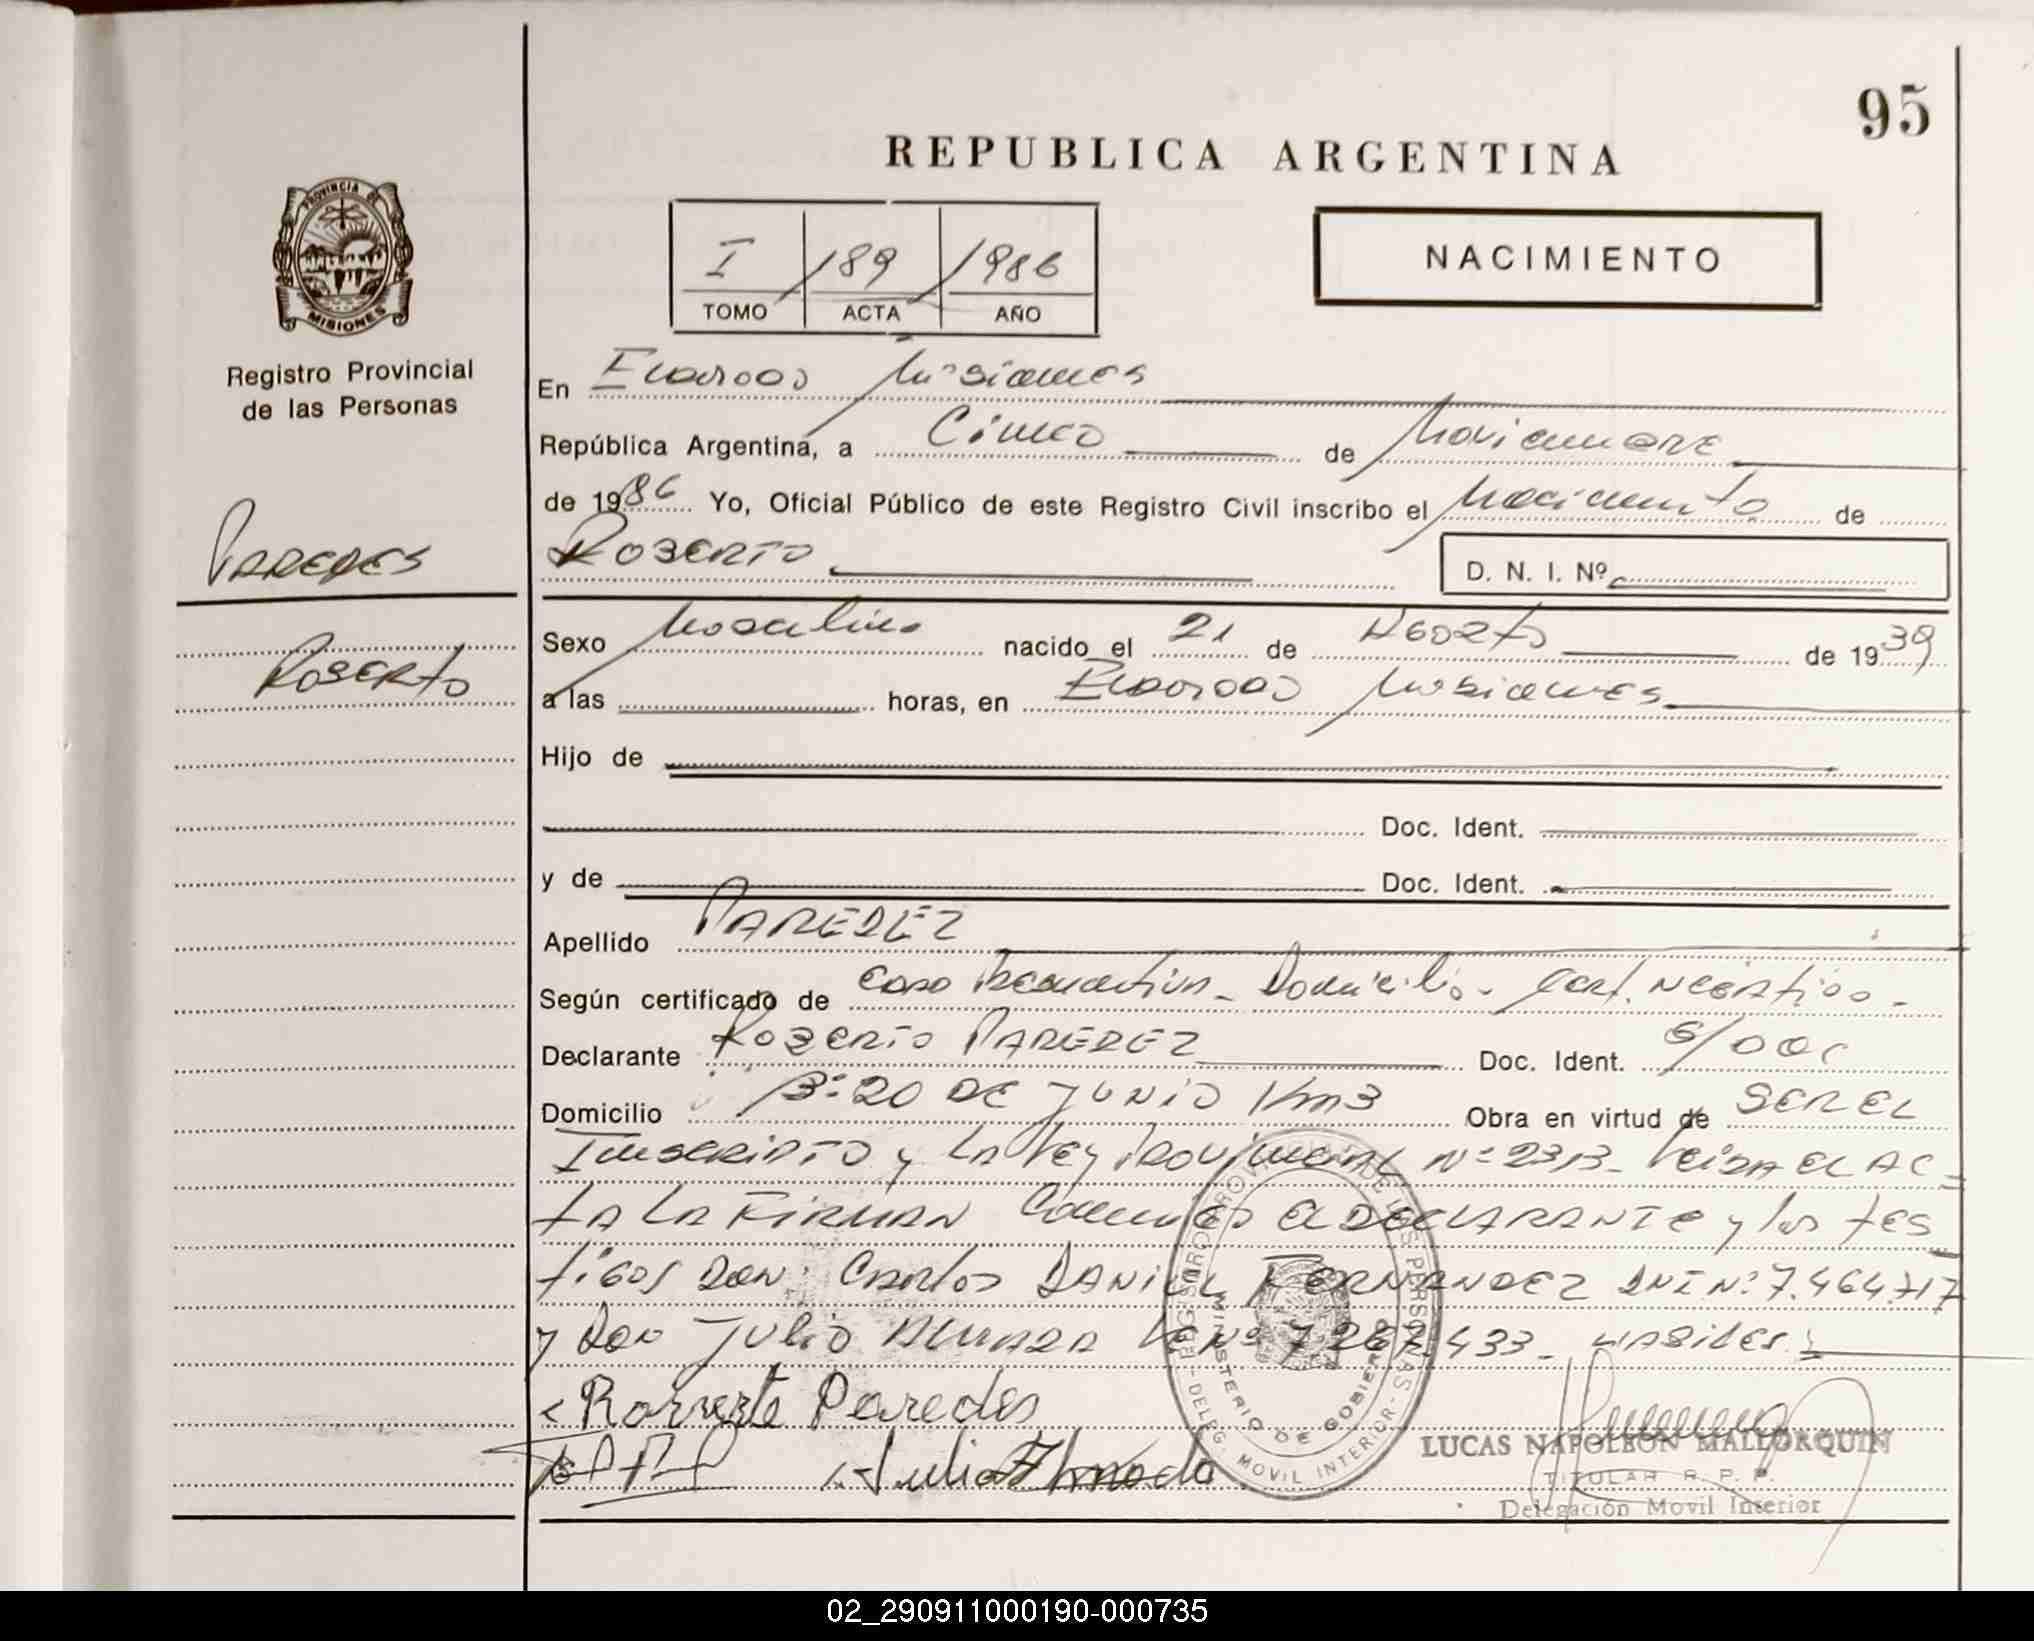 95
REPUBLICA ARGENTINA
PROVINCIA DE
MISIONES
I 189 1986
TOMO ACTA AÑO
NACIMIENTO
Registro Provincial
de las Personas
En Eldorado Misiones
República Argentina, a Cinco de Noviembre
de 1986 Yo, Oficial Público de este Registro Civil inscribo el Nacimiento de
PAREDES
ROBERTO
D. N. I. Nº
Roberto
Sexo Masculino nacido el 21 de Agosto de 1939
a las horas, en Eldorado Misiones
Hijo de
Doc. Ident.
y de Doc. Ident.
Apellido PAREDEZ
Según certificado de Domicilio - Cert. Negativo -
Declarante ROBERTO PAREDEZ Doc. Ident.
Domicilio Bº 20 DE JUNIO Km3 Obra en virtud de SER EL
Inscripto y la Ley Provincial Nº 2313 - Leida el ac=
ta la firman Conmigo el DECLARANTE y los tes
tigos Don. Carlos DANIEL FERNANDEZ DNI Nº 7.464.717
y Don Julio Almada LE Nº 7.267.433 - HABILES.
Paredes
Julio Almada
REGISTRO PROVINCIAL DE LAS PERSONAS
MINISTERIO DE GOBIERNO
DELEG. MOVIL INTERIOR
LUCAS NAPOLEON MALLORQUIN
TITULAR R. P. P.
Delegación Movil Interior
02_290911000190-000735